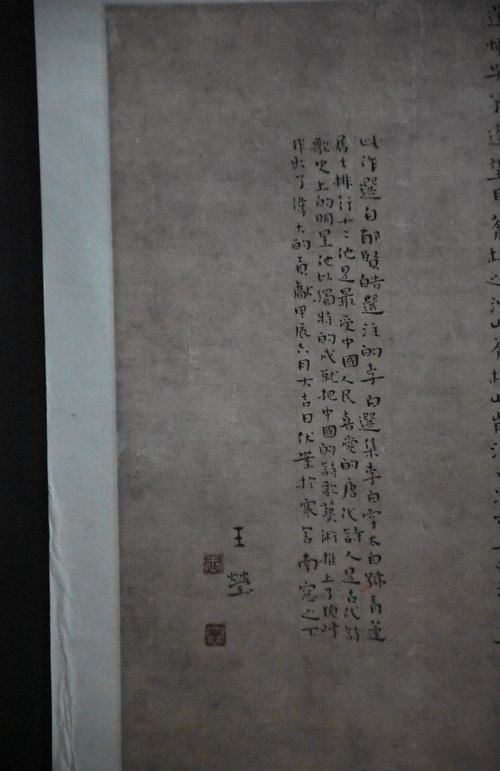 以作選自郁賢皓選注的李白選集李白字太白號青蓮
居士排行十二他是最受中國人民喜愛的唐代詩人是古代詩
歌史上的明星他以獨特的成就把中國的詩歌藝術推上了頂峰
作出了偉大的貢獻甲辰六月大吉日伏案於寒舍南窓之下
王瑩